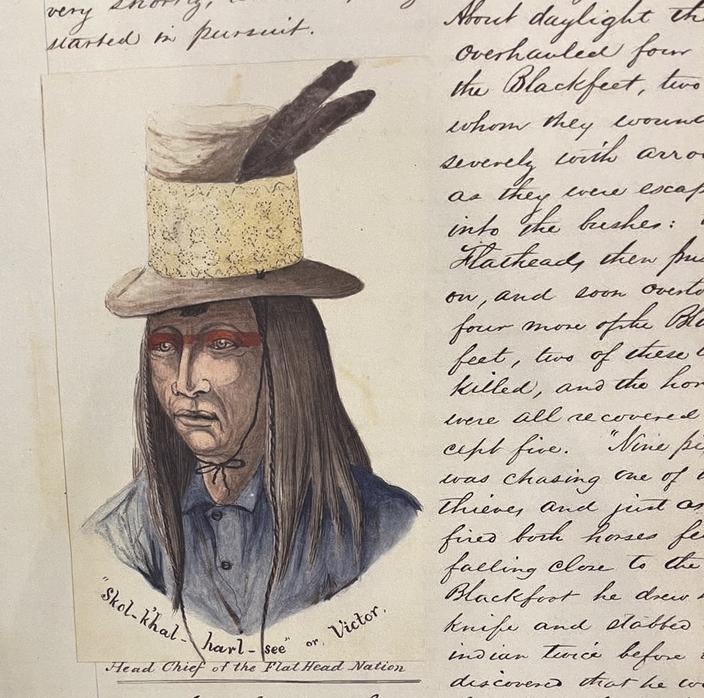 very shortly,
started in pursuit.
"Skol-k'hal- harl-see" or, Victor.
Head Chief of the Flat Head Nation
About daylight the
overhauled four
the Blackfeet, two
whom they wound
severely with arro
as they were escap
into the bushes:
Flatheads then pu
on, and soon overto
four more of the Bla
feet, two of these
killed, and the hor
were all recovered
cept five. "Nine pi
was chasing one of
thieves and just as
fired both horses fe
falling close to the
Blackfoot he drew
knife and stabbed
indian twice before
discovered that he wo